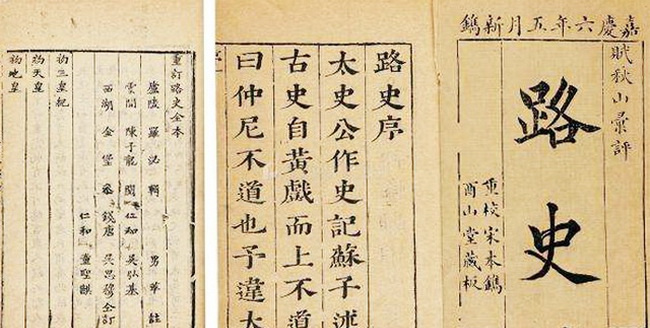 嘉慶六年五月新鐫
賦秋山彙評
路史
重校宋本鐫
酉山堂藏板
路史序
太史公作史記蘇子述
古史自黃戲而上不道
曰仲尼不道也予違大
重訂路史全本
廬陵 羅泌 輯 男 苹 註
雲間 陳子龍 閱 仁和 吳弘基
西湖 金堡 叅 錢唐 吳思穆 仝訂
仁和 董
初三皇紀
初天皇
初地皇